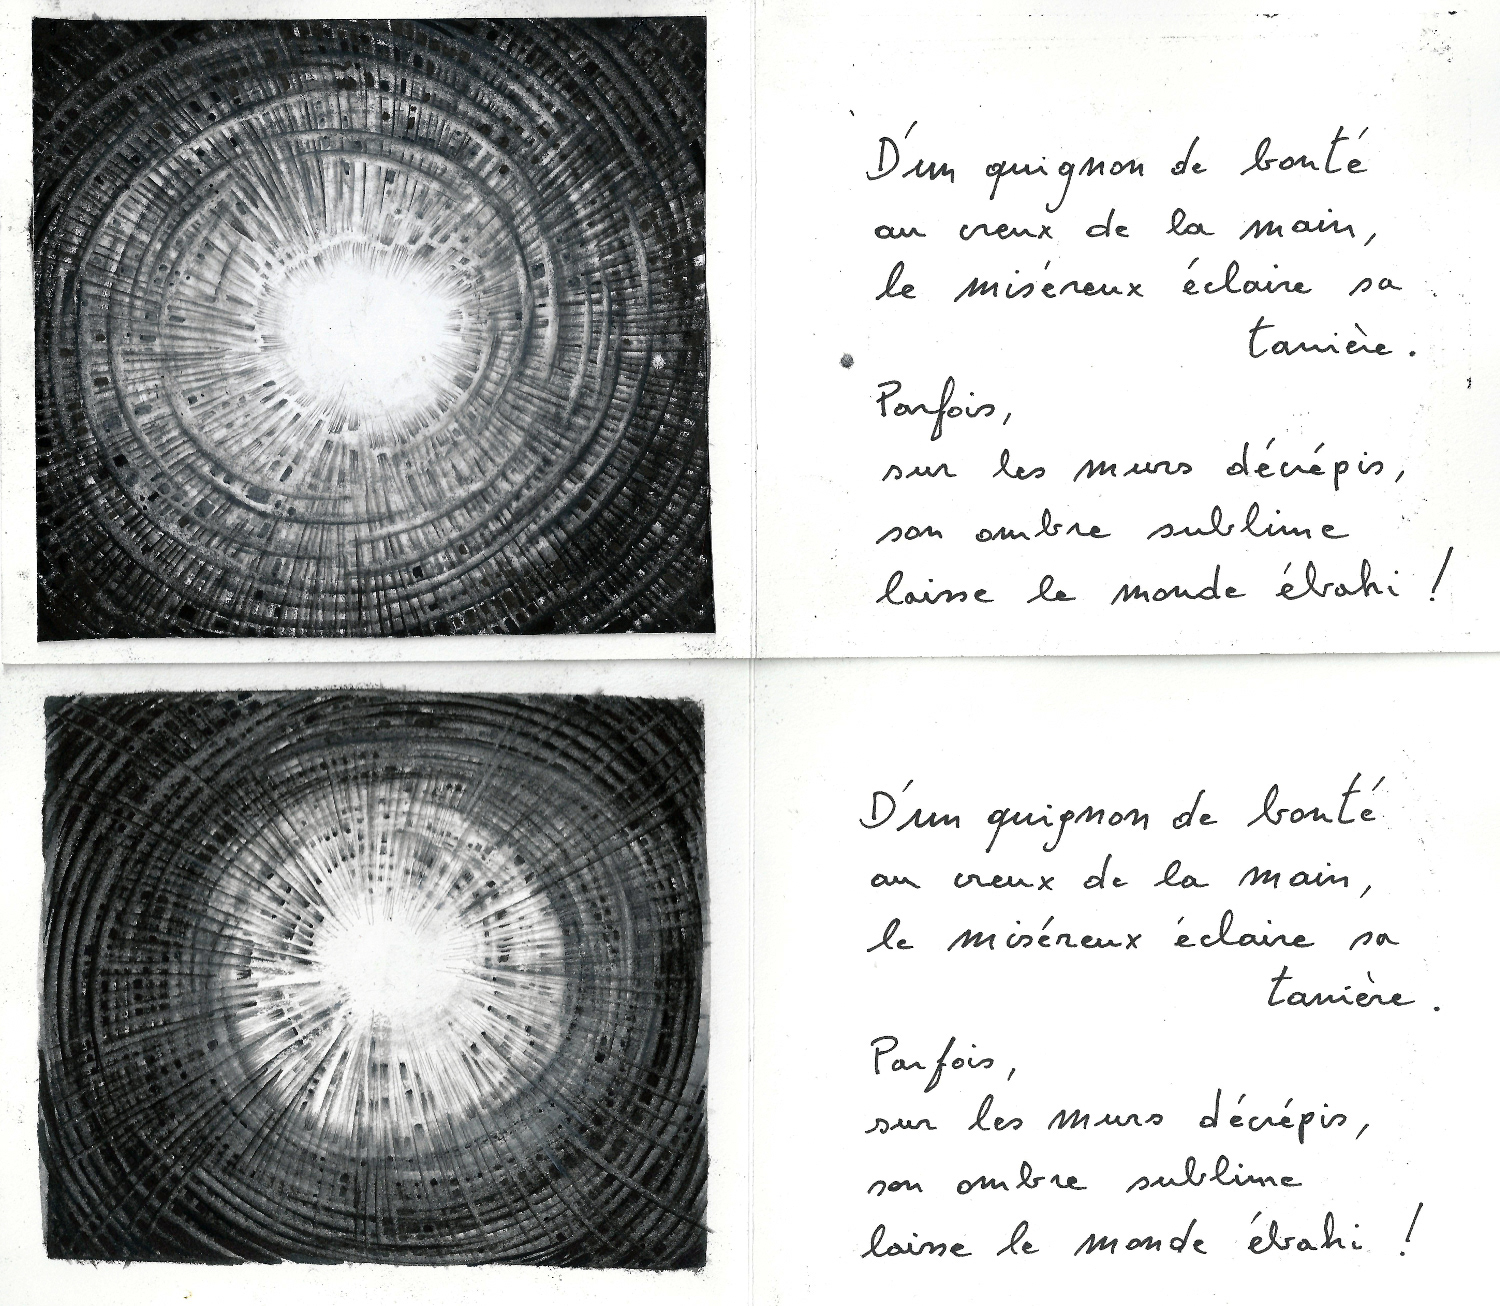 D'un quignon de bonté
au creux de la main,
le miséreux éclaire sa
tanière.
Parfois,
sur les murs décrépis,
son ombre sublime
laisse le monde ébahi !
D'un quignon de bonté
au creux de la main,
le miséreux éclaire sa
tanière.
Parfois,
sur les murs décrépis,
son ombre sublime
laisse le monde ébahi !